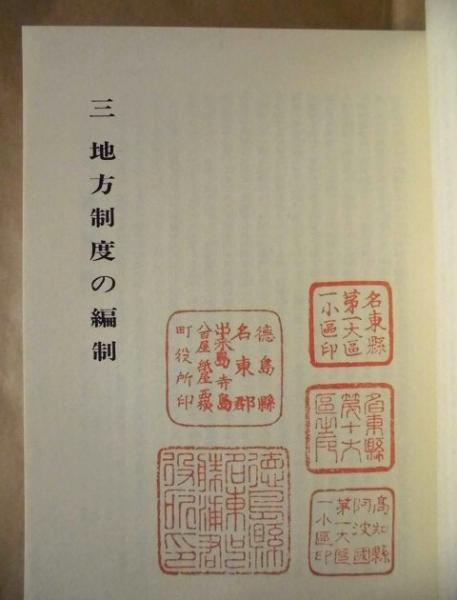 三 地方制度の編制
名東縣
第一大區
一小區印
名東縣
第十大
區之印
高知縣
阿波國
第一大區
一小區印
德島縣
名東郡
出來島寺島
町役所印
德島縣
名東兼
勝浦郡
役所印